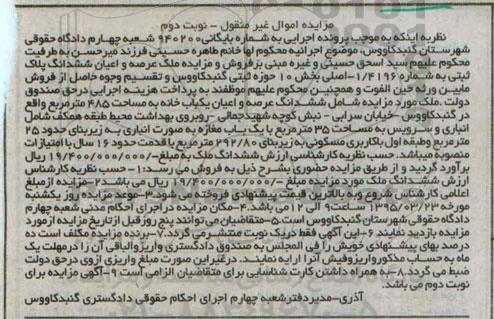 مزایده اموال غیر منقول - نوبت دوم
نظر به اینکه به موجب پرونده اجرایی به شماره بایگانی ۹۴۰۲۰۰ شعبه چهارم دادگاه حقوقی
شهرستان گنبدکاووس، موضوع اجرائیه محکوم لها خانم طاهره حسینی فرزند میرحسن به طرفیت
محکوم علیهم سید اسحق حسینی و غیره مبنی بر فروش و مزایده ملک عرصه و اعیان ششدانگ پلاک
ثبتی به شماره ۱/۴۱۹۶-اصلی بخش ۱۰ حوزه ثبتی گنبدکاووس و تقسیم وجوه حاصل از فروش
مابین ورثه حین الفوت و همچنین محکوم علیهم موظفند به پرداخت هزینه اجرایی در حق صندوق
دولت .ملک مورد مزایده شامل ششدانگ عرصه و اعیان یکباب خانه به مساحت ۴۸۵ مترمربع واقع
در گنبدکاووس -خیابان سرابی - نبش کوچه شهیدجمالی -روبروی بهداشت محیط طبقه همکف شامل
انباری و سرویس به مساحت ۳۵ مترمربع با یک باب مغازه به صورت انباری به زیربنای حدود ۲۵
مترمربع وطبقه اول باکاربری مسکونی به زیربنای ۲۹۲/۸۰ مترمربع با قدمت حدود ۱۶ سال با امتیازات
منصوبه میباشد. حسب نظریه کارشناسی ارزش ششدانگ ملک به مبلغ -/۱۹/۴۰۰/۰۰۰/۰۰۰ ریال
برآورد گردید و از طریق مزایده حضوری بشرح ذیل به فروش می رسد:۱- حسب نظریه کارشناس
ارزش ششدانگ ملک مورد مزایده مبلغ -/۱۹/۴۰۰/۰۰۰/۰۰۰ ریال می باشد۲-مزایده ازمبلغ
اعلامی کارشناس شروع و به بالاترین قیمت پیشنهادی فروخته می شود.۳-موعد مزایده روز یکشنبه
مورخه ۱۳۹۵/۰۳/۲۳ ساعت۹ الی ۱۲ می باشد.۴-مکان مزایده در اجرای احکام مدنی شعبه چهارم
دادگاه حقوقی شهرستان گنبدکاووس است.۵-متقاضیان می توانند پنج روز قبل از تاریخ مزایده از مورد
مزایده بازدید نمایند ۶-این آگهی فقط در یک نوبت منتشر می گردد.۷-برنده مزایده مکلف است ده
درصد بهای پیشنهادی خویش را فی المجلس به صندوق دادگستری واریز و الباقی آن را در مهلت یک
ماه به حساب مذکور واریز و فیش آنرا ارایه نمایند. در غیر این صورت مبلغ واریزی از وی در حق دولت
ضبط می گردد.۸-به همراه داشتن کارت شناسایی برای متقاضیان الزامی است ۹-آگهی مزایده برای
نوبت دوم می باشد.
آذری-مدیردفتر شعبه چهارم اجرای احکام حقوقی دادگستری گنبدکاووس